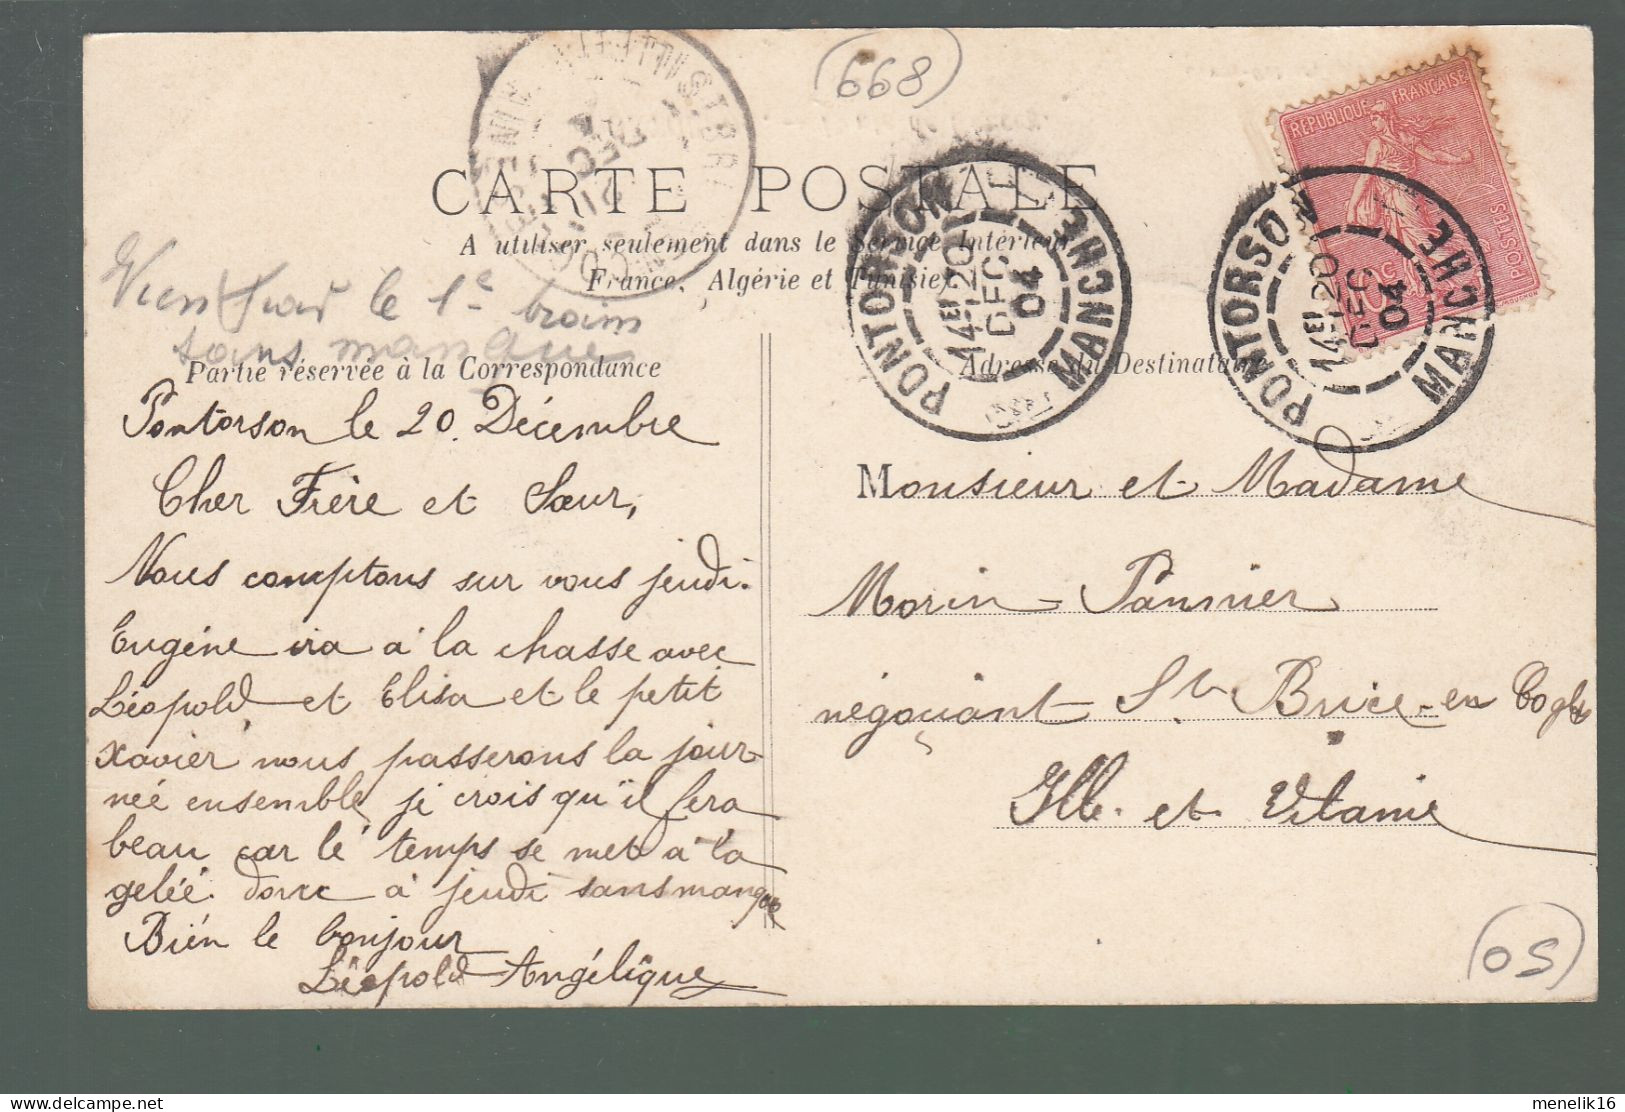 668
RÉPUBLIQUE FRANÇAISE
POSTES
10c
CARTE POSTALE
A utiliser seulement dans le Service Intérieur
France, Algérie et Tunisie
PONTORSON MANCHE
14E 20 DEC 04
PONTORSON MANCHE
14E 20 DEC 04
21 DEC
Viens par le 1e train
sans manque
Partie réservée à la Correspondance
Adresse du Destinataire
Pontorson le 20. Décembre
Cher Frère et Sœur,
Nous comptons sur vous jeudi.
Eugéne ira à la chasse avec
Léopold et Elisa et le petit
Xavier nous passerons la jour-
neé ensemble je crois qu'il fera
beau car lé temps se met à la
geleé. donc à jeudi sans manque
Bién le bonjour
Léopold Angélique
Monsieur et Madame
Morin-Pannier
négociant St Brice-en Cogles
Ille. et Vilaine
OS
menelik16